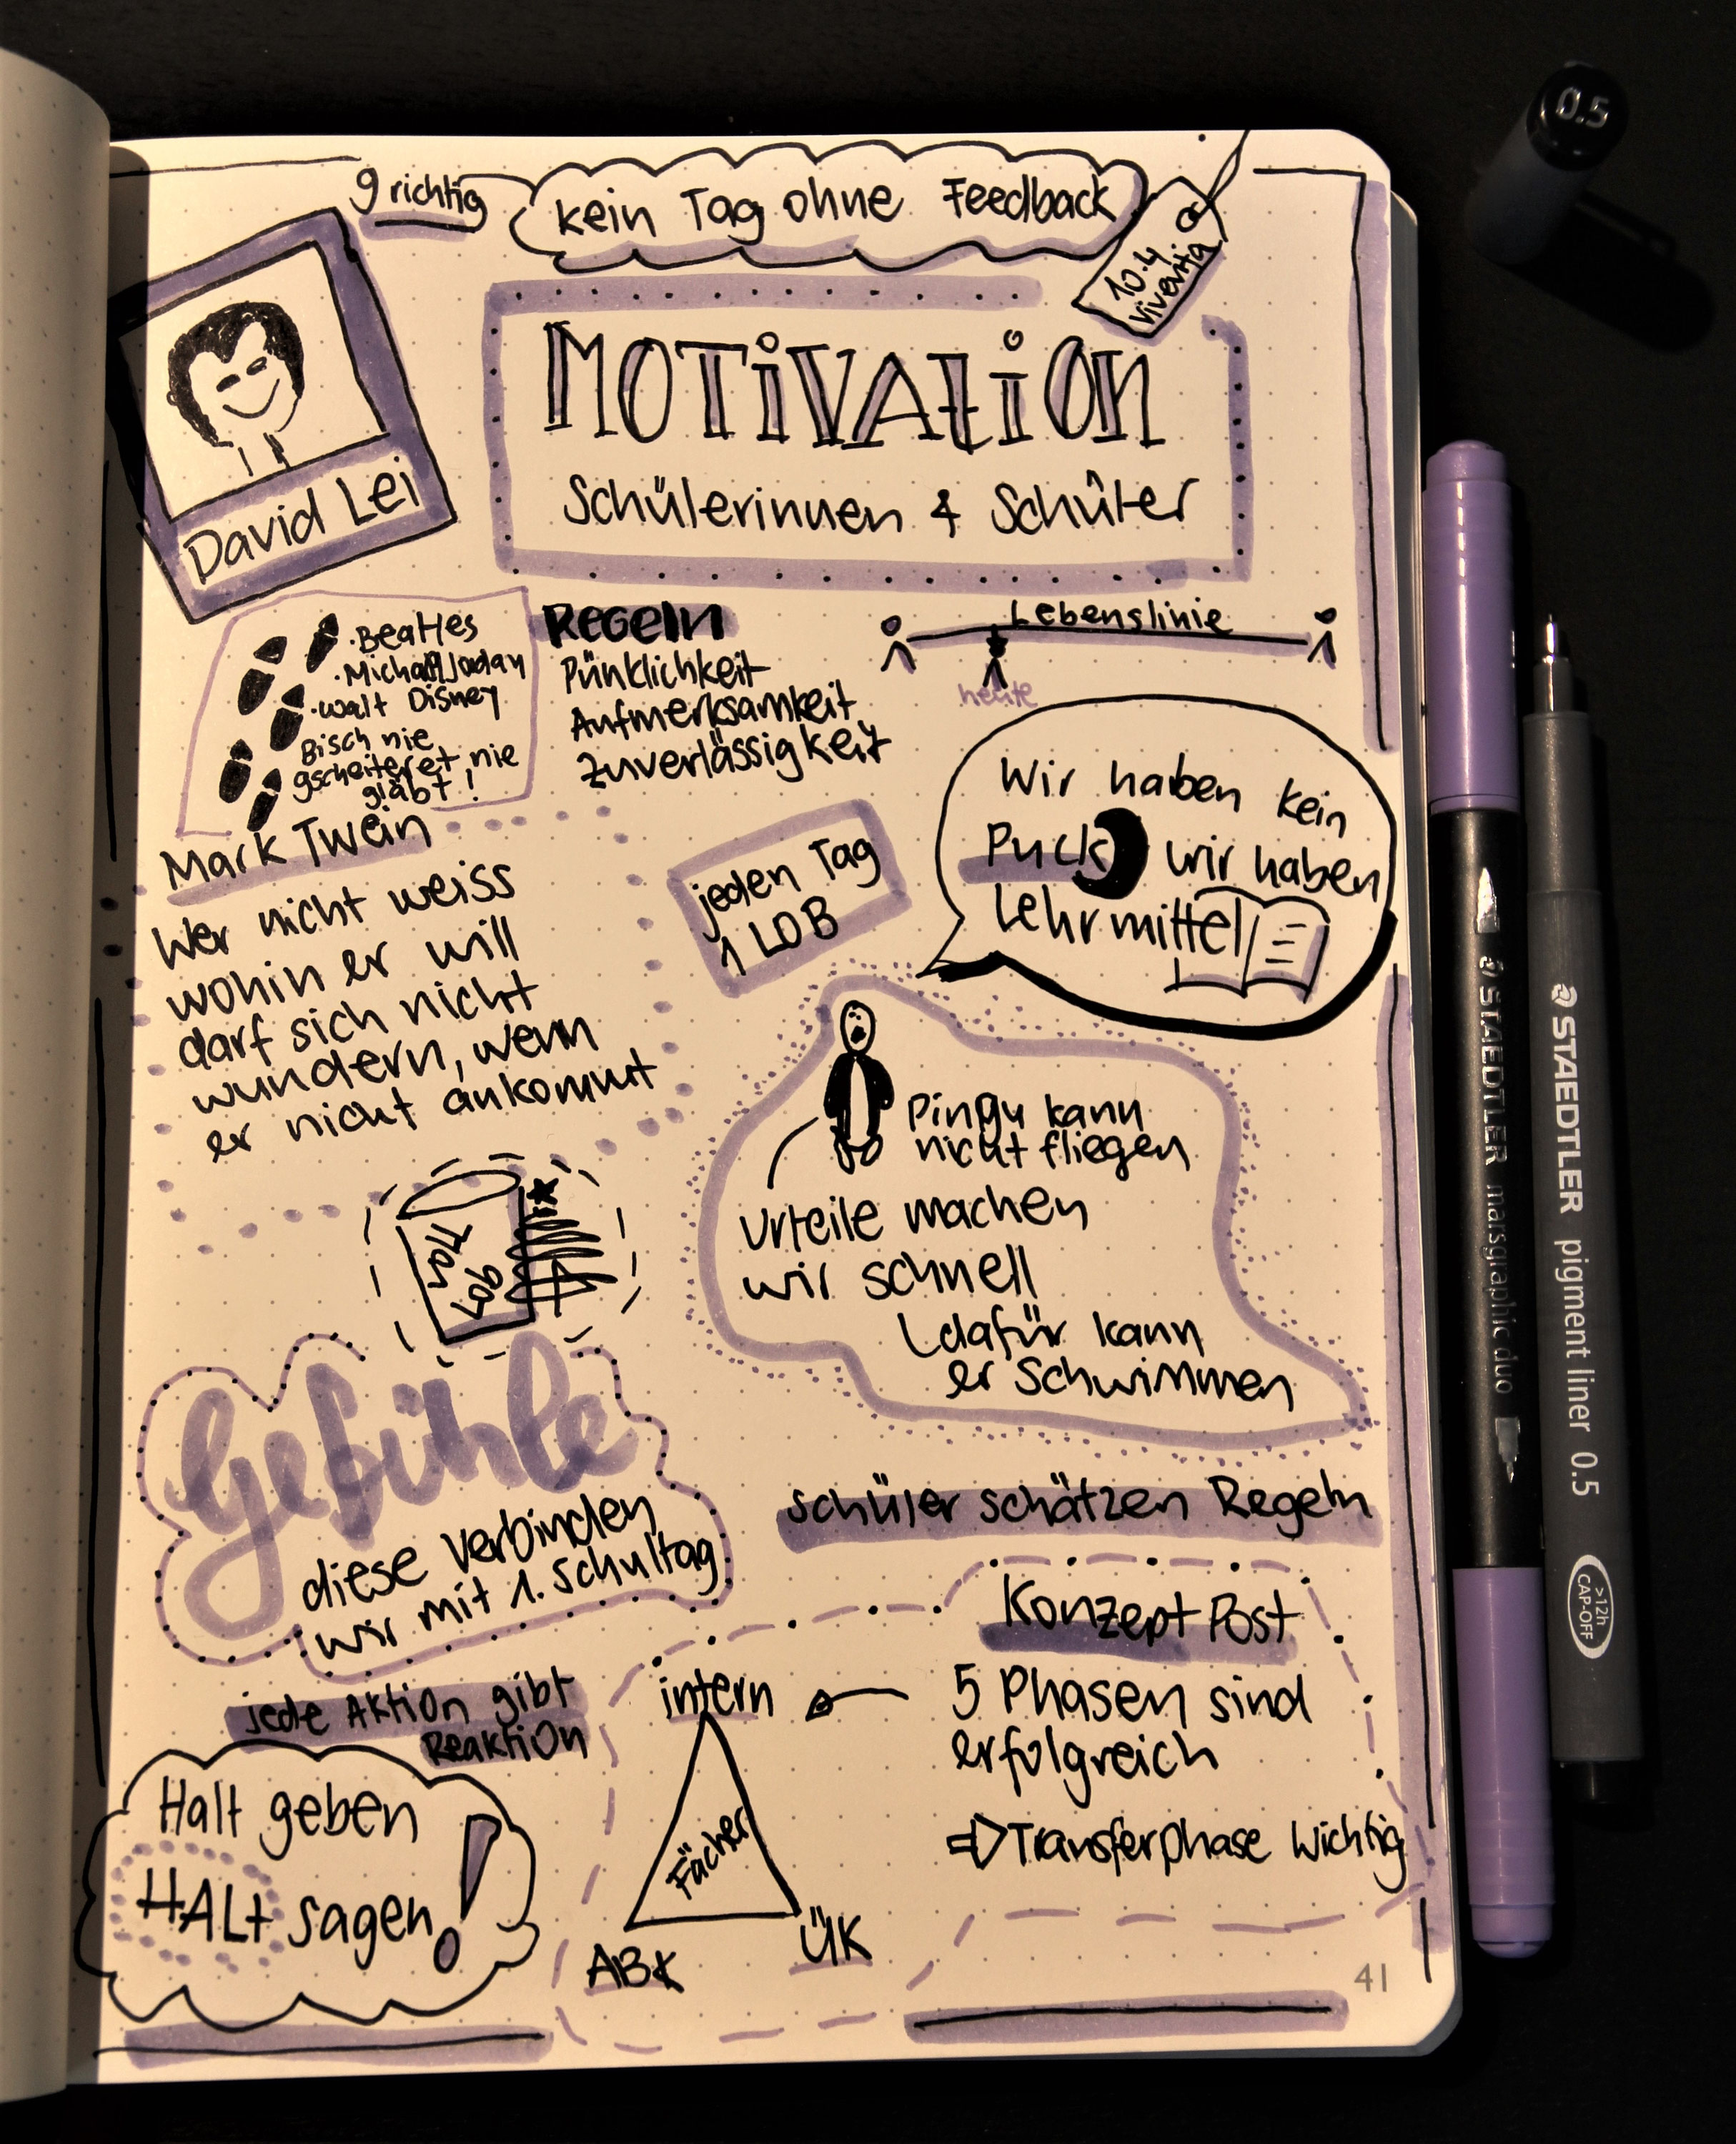 9 richtig
kein Tag ohne Feedback
10.4
viventia
MOTiVATiON
Schülerinnen & Schüler
David Lei
• Beatles
• Walt Disney
Bisch nie
gscheiteret, nie
giäbt!
Regeln
Pünklichkeit
Aufmerksamkeit
Zuverlässigkeit
Lebenslinie
heute
Wir haben kein
Puck, wir haben
Lehrmittel
Mark Twein
Wer nicht weiss
wohin er will
darf sich nicht
wundern, wenn
er nicht ankommt
jeden Tag
1 LOB
Pingu kann
nicht fliegen
Urteile machen
wir schnell
dafür kann
er schwimmen
Gefühle
diese verbinden
wir mit 1. Schultag
schüler schätzen Regeln
Konzept Post
5 Phasen sind
erfolgreich
⇒ Transferphase wichtig
intern
Fächer
ÜK
jede Aktion gibt
Reaktion
Halt geben
HALt sagen!
41
0.5
STAEDTLER marsgraphic duo
STAEDTLER pigment liner 0.5
>12h
CAP-OFF